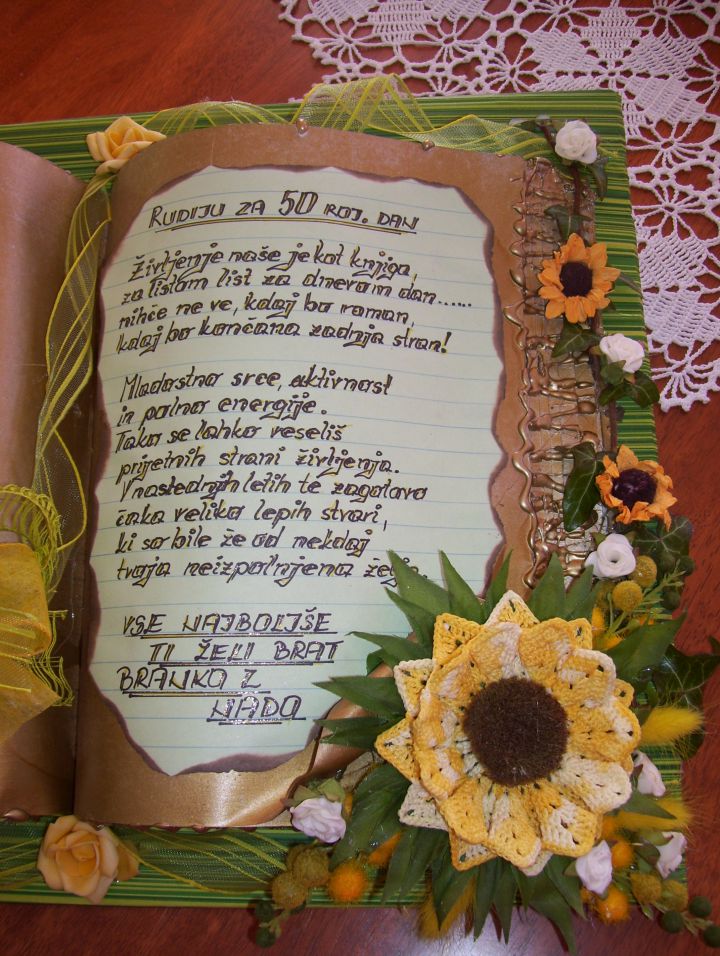 RUDIJU ZA 50 ROJ. DAN
Življenje naše je kot knjiga,
za listom list za dnevom dan......
nihče ne ve, kdaj bo roman,
kdaj bo končana zadnja stran!
Mladostno srce, aktivnost
in polno energije.
Tako se lahko veseliš
prijetnih strani življenja.
V naslednjih letih te zagotovo
čaka veliko lepih stvari,
ki so bile že od nekdaj
tvoja neizpolnjena želja.
VSE NAJBOLJŠE
TI ŽELI BRAT
BRANKO Z
NADO